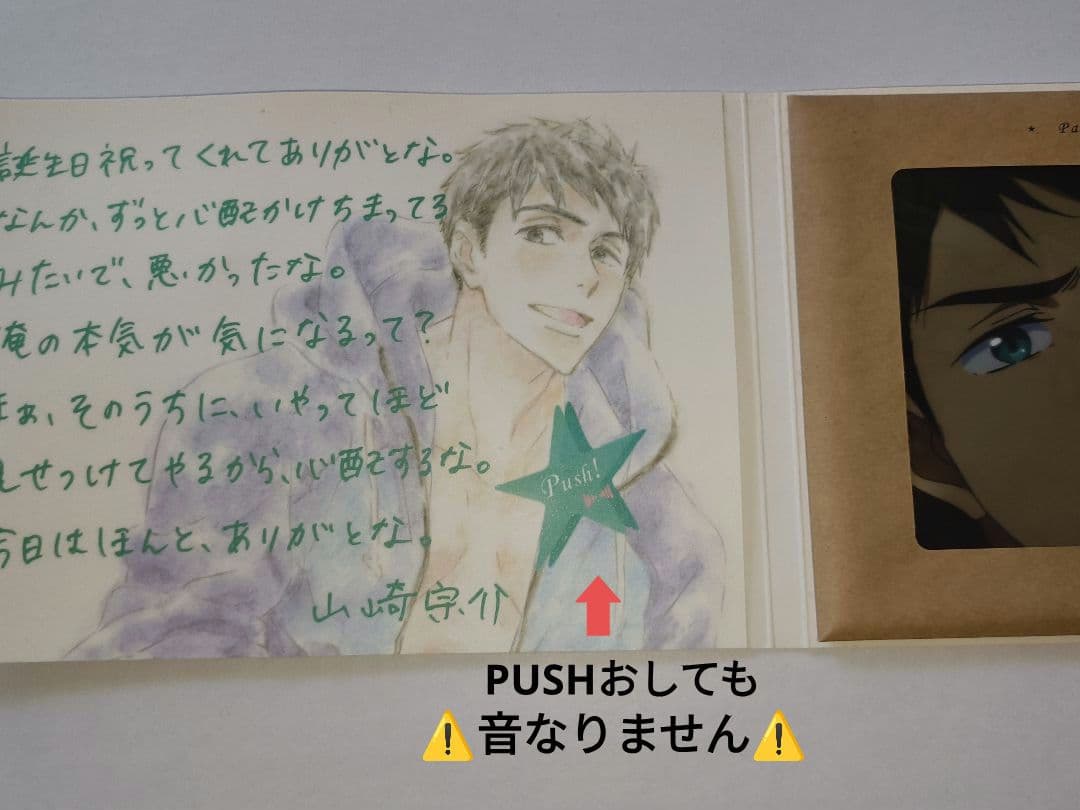 誕生日祝ってくれてありがとな。
なんか、ずっと心配かけちまってる
みたいで、悪かったな。
俺の本気が気になるって?
まぁ、そのうちに、いやってほど
しせつけてやるから、心配するな。
今日はほんと、ありがとな。
山崎宗介
Push!
★ Pa
PUSHおしても
⚠️音なりません⚠️